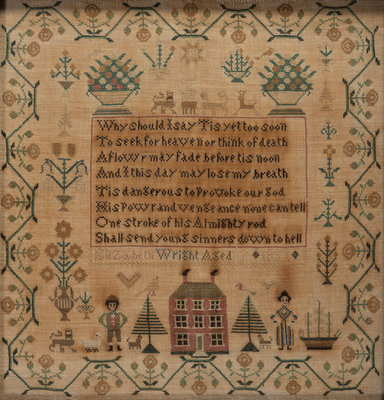 Why should I say Tis yet too soon
To seek for heaven or think of death
A flowr may fade before tis noon
And I this day may lose my breath
Tis dangerous to Provoke our god
His Powr and vengeance none can tell
One stroke of his Almighty rod
Shall send young sinners down to hell
Elizabeth Wright Aged